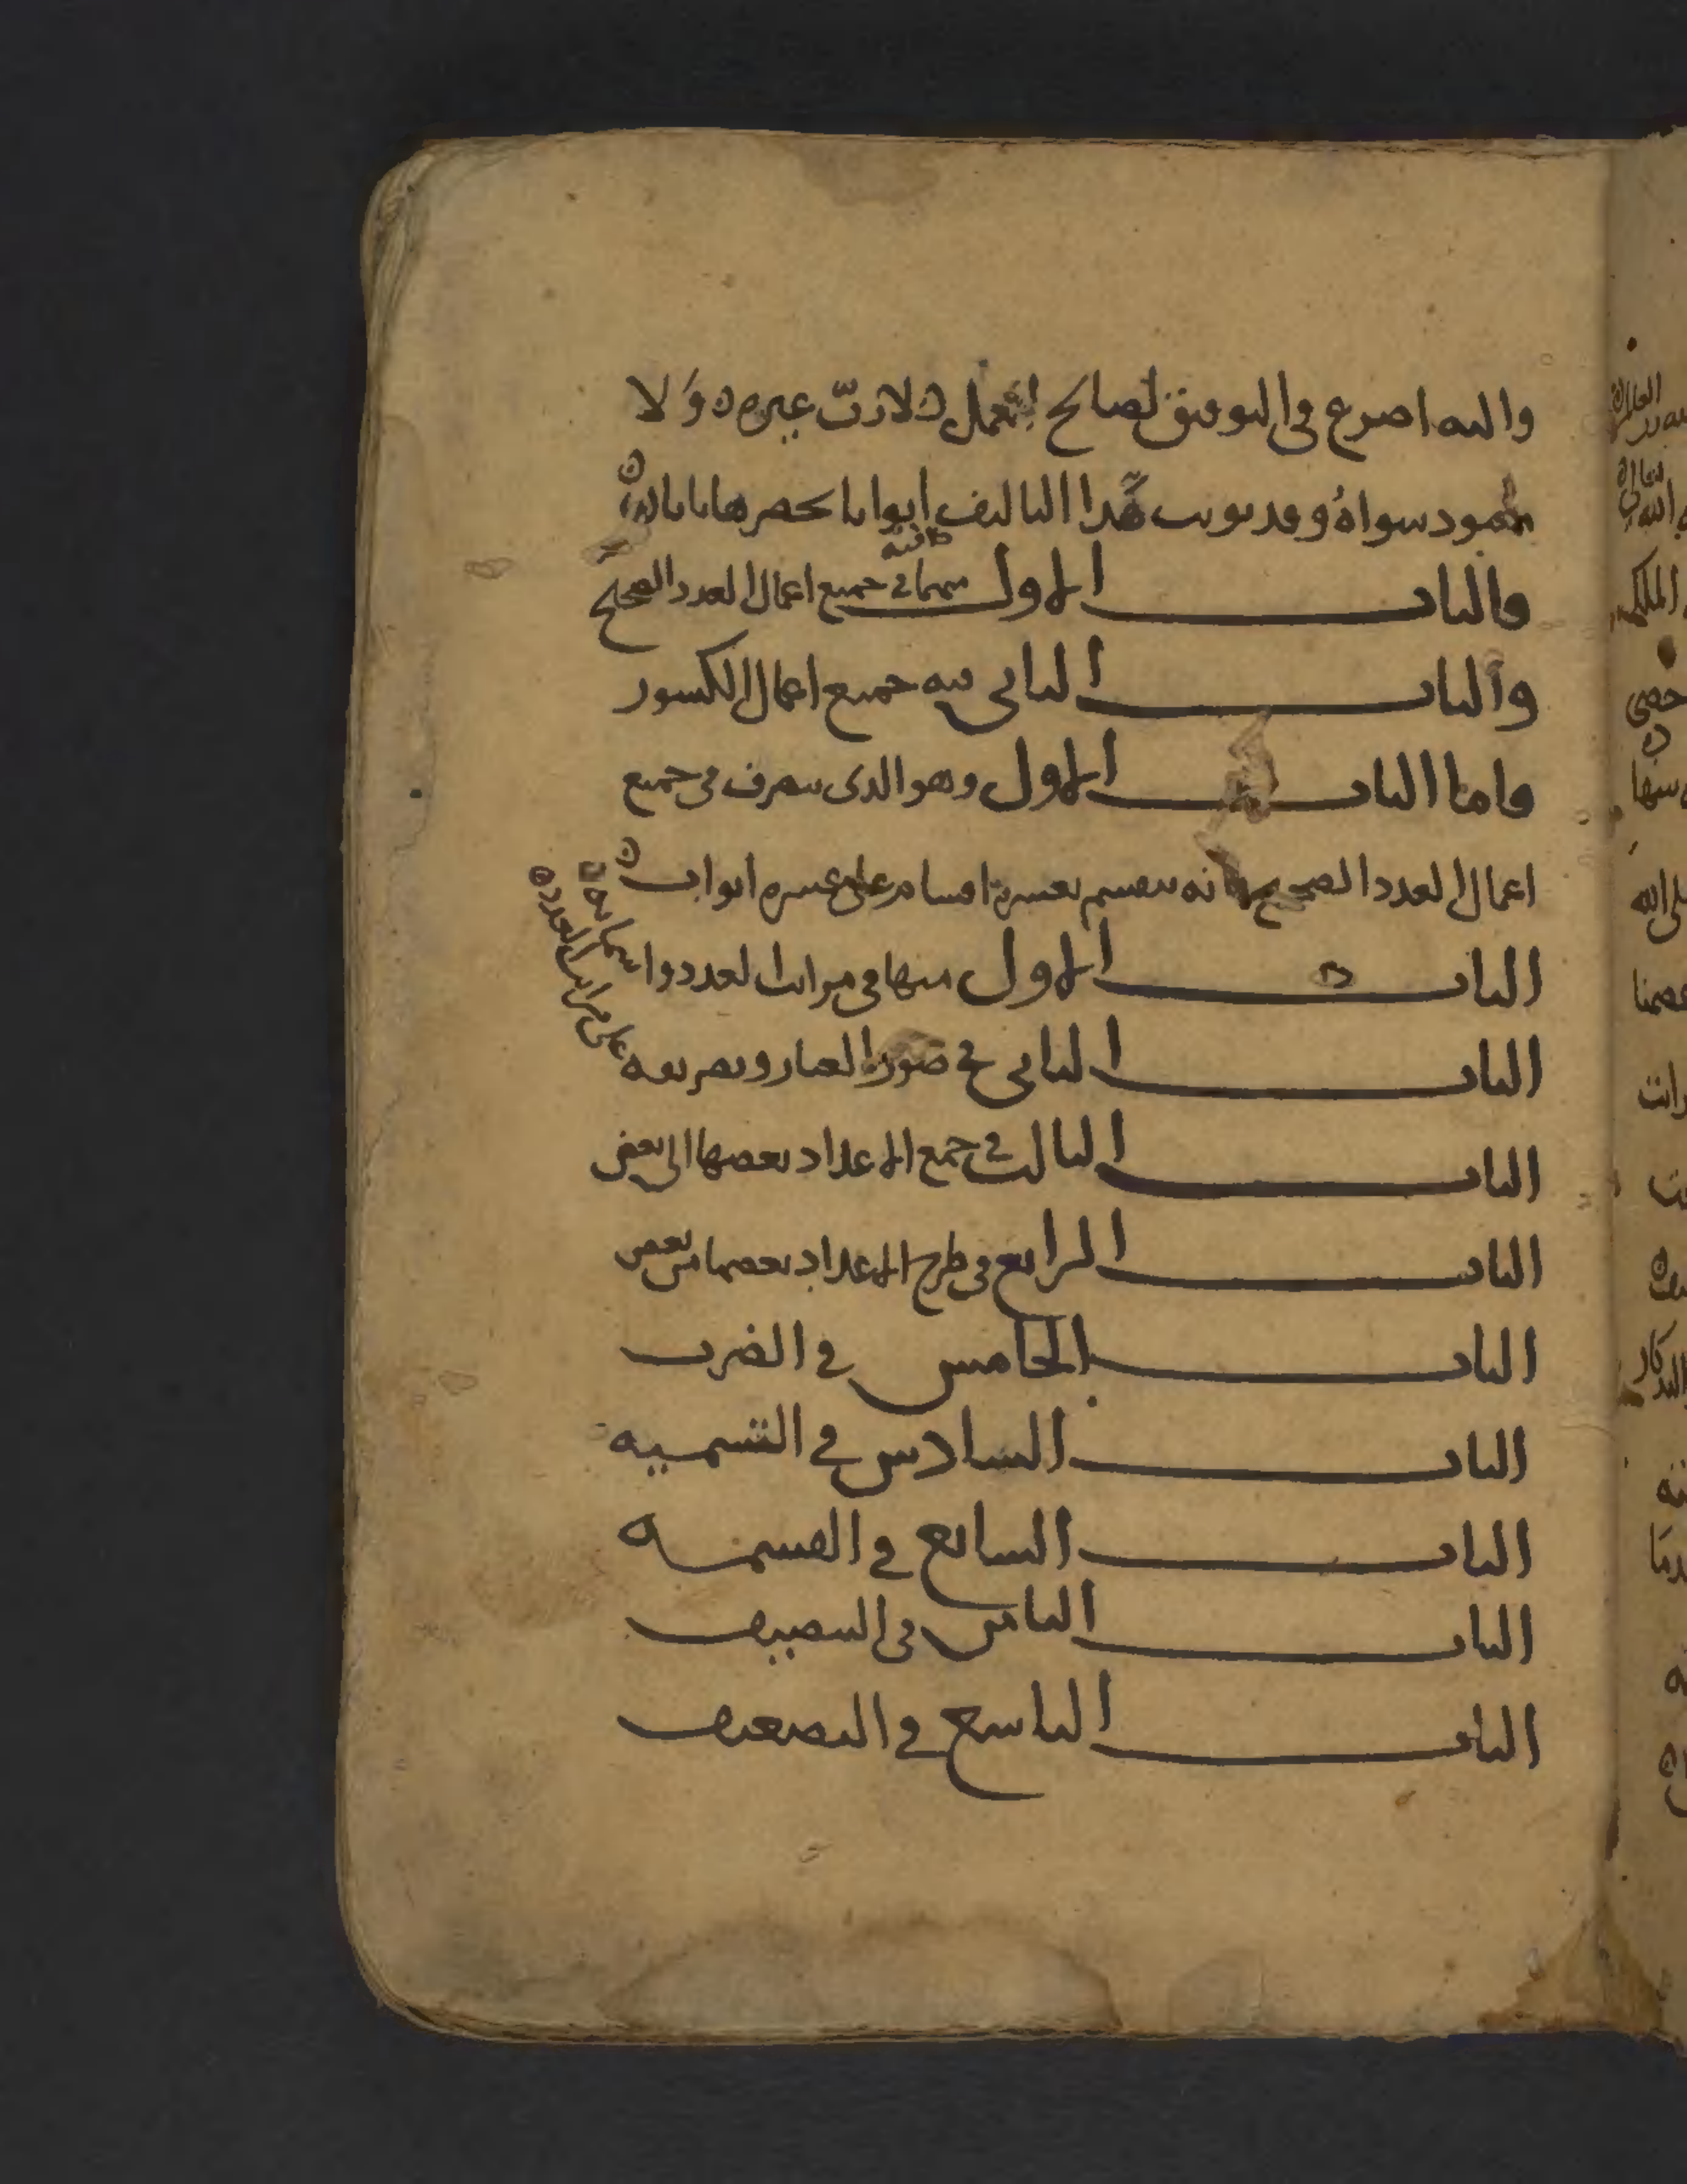 واليه اضرع في التوفيق لصالح العمل لا رب غيره ولا
معبود سواه وقد بوبت هذا التاليف ابوابا يحصرها بابان
فالباب الاول منهما في جميع اعمال العدد الصحيح
والباب الثاني فيه جميع اعمال الكسور
فاما الباب الاول وهو الذي يتصرف في جميع
اعمال العدد الصحيح فانه ينقسم بعشرة اقسام على عشرة ابواب
الباب الاول منها في مراتب العدد
على مراتب العدد
الباب الثاني في صورة الغبار وتصريفه
الباب الثالث في جمع الاعداد بعضها الى بعض
الباب الرابع في طرح الاعداد بعضها من بعض
الباب الخامس في الضرب
الباب السادس في التسميه
الباب السابع في القسمه
الباب الثامن في التنصيف
الباب التاسع في التضعيف